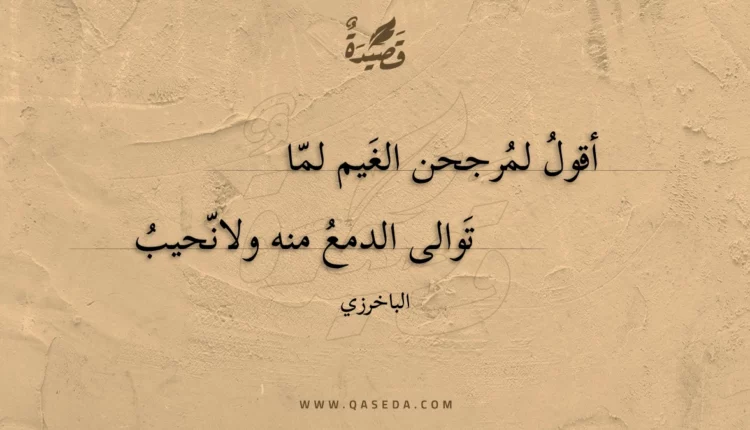 قَصِيْدَةٌ
أقولُ لمُرجحن الغَيم لمّا
تَوالى الدمعُ منه ولانّحيبُ
الباخرزي
WWW.QASEDA.COM